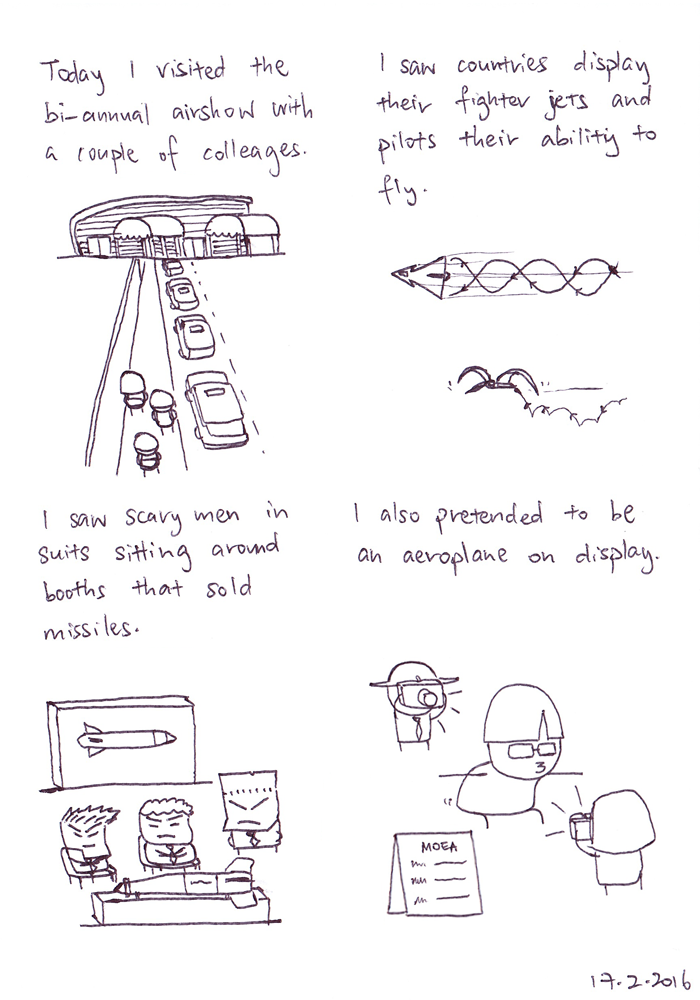 Today I visited the
bi-annual airshow with
a couple of colleages.
I saw countries display
their fighter jets and
pilots their ability to
fly.
I saw scary men in
suits sitting around
booths that sold
missiles.
I also pretended to be
an aeroplane on display.
MOEA
17.2.2016